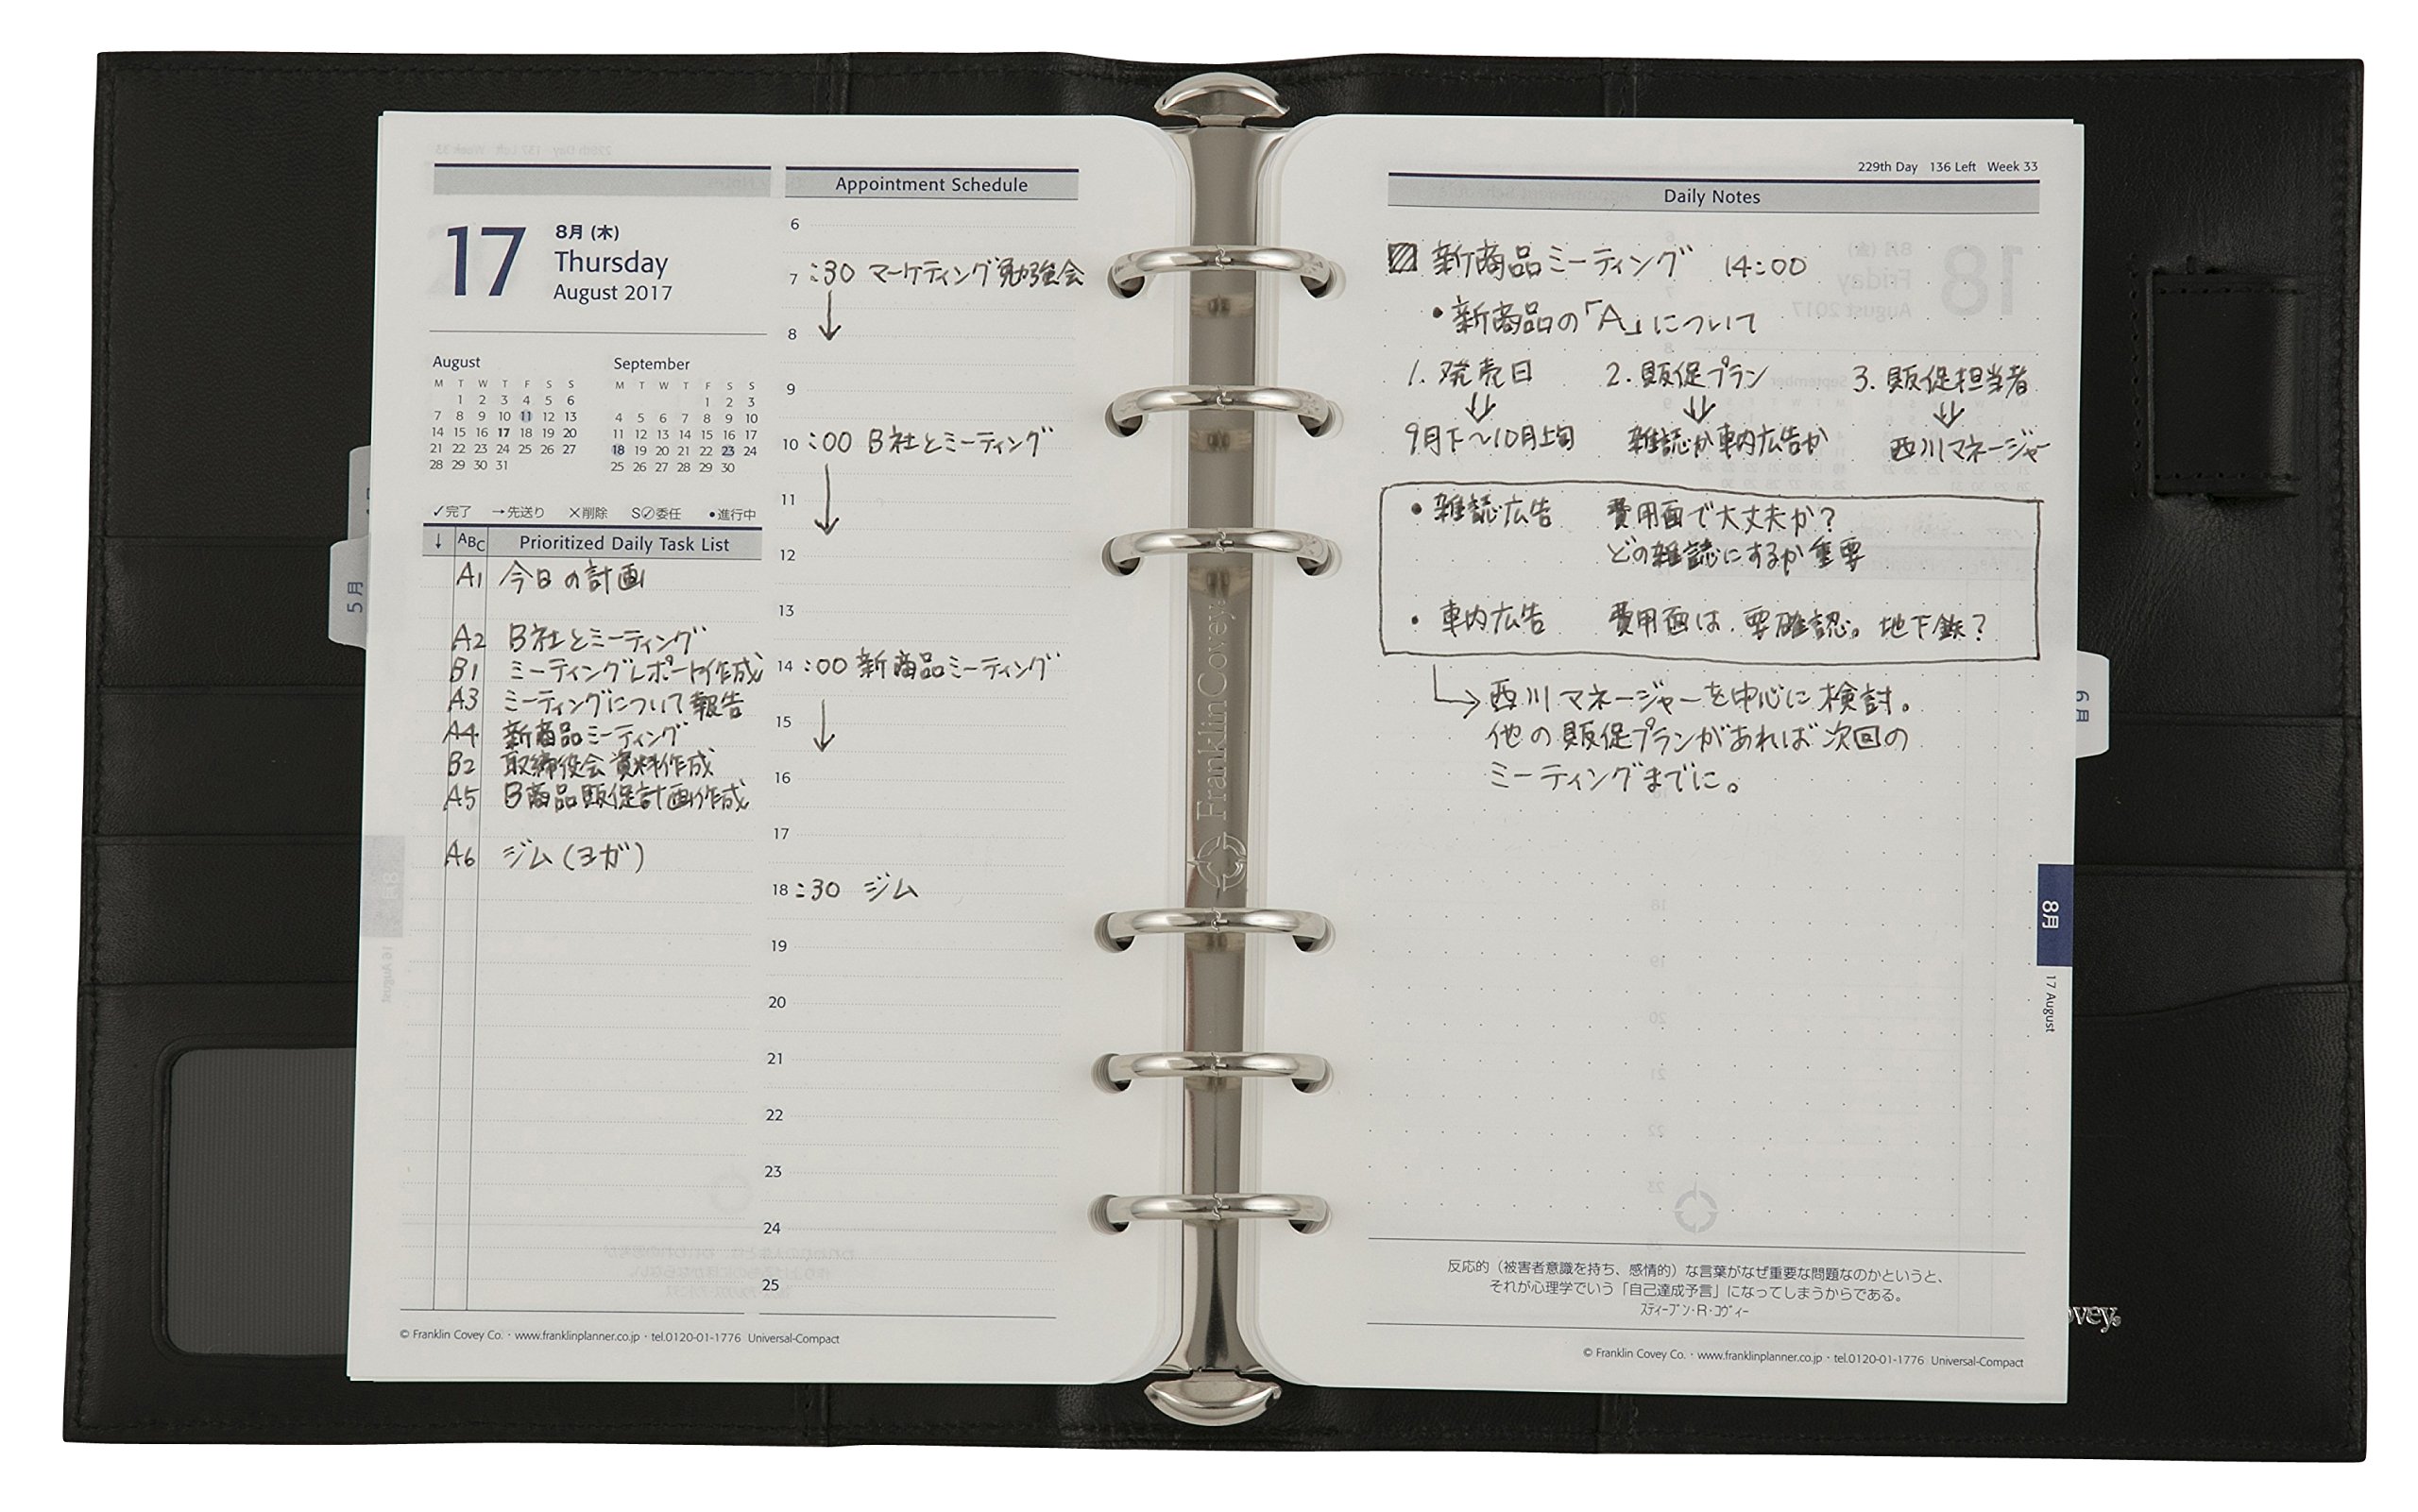 17
8月 (木)
Thursday
August 2017
August
M T W T F S S
1 2 3 4 5 6
7 8 9 10 11 12 13
14 15 16 17 18 19 20
21 22 23 24 25 26 27
28 29 30 31
September
M T W T F S S
1 2 3
4 5 6 7 8 9 10
11 12 13 14 15 16 17
18 19 20 21 22 23 24
25 26 27 28 29 30
✓完了 →先送り ×削除 S⊘委任 •進行中
↓ ABC Prioritized Daily Task List
A1 今日の計画
A2 B社とミーティング
B1 ミーティングレポート作成
A3 ミーティングについて報告
A4 新商品ミーティング
B2 取締役会資料作成
A5 B商品販促計画作成
A6 ジム(ヨガ)
Appointment Schedule
6
7 :30 マーケティング勉強会
8
9
10 :00 B社とミーティング
11
12
13
14 :00 新商品ミーティング
15
16
17
18 :30 ジム
19
20
21
22
23
24
25
© Franklin Covey Co.・www.franklinplanner.co.jp・tel.0120-01-1776 Universal-Compact
5月
FranklinCovey
229th Day 136 Left Week 33
Daily Notes
新商品ミーティング 14:00
•新商品の「A」について
1. 発売日 2. 販促プラン 3. 販促担当者
9月下〜10月上旬 雑誌か車内広告か 西川マネージャー
•雑誌広告 費用面で大丈夫か?
どの雑誌にするか重要
•車内広告 費用面は、要確認。地下鉄?
西川マネージャーを中心に検討。
他の販促プランがあれば次回の
ミーティングまでに。
9月
8月
17 August
反応的（被害者意識を持ち、感情的）な言葉がなぜ重要な問題なのかというと、
それが心理学でいう「自己達成予言」になってしまうからである。
ｽﾃｨｰﾌﾞﾝ･R･ｺｳﾞｨｰ
© Franklin Covey Co.・www.franklinplanner.co.jp・tel.0120-01-1776 Universal-Compact
ovey